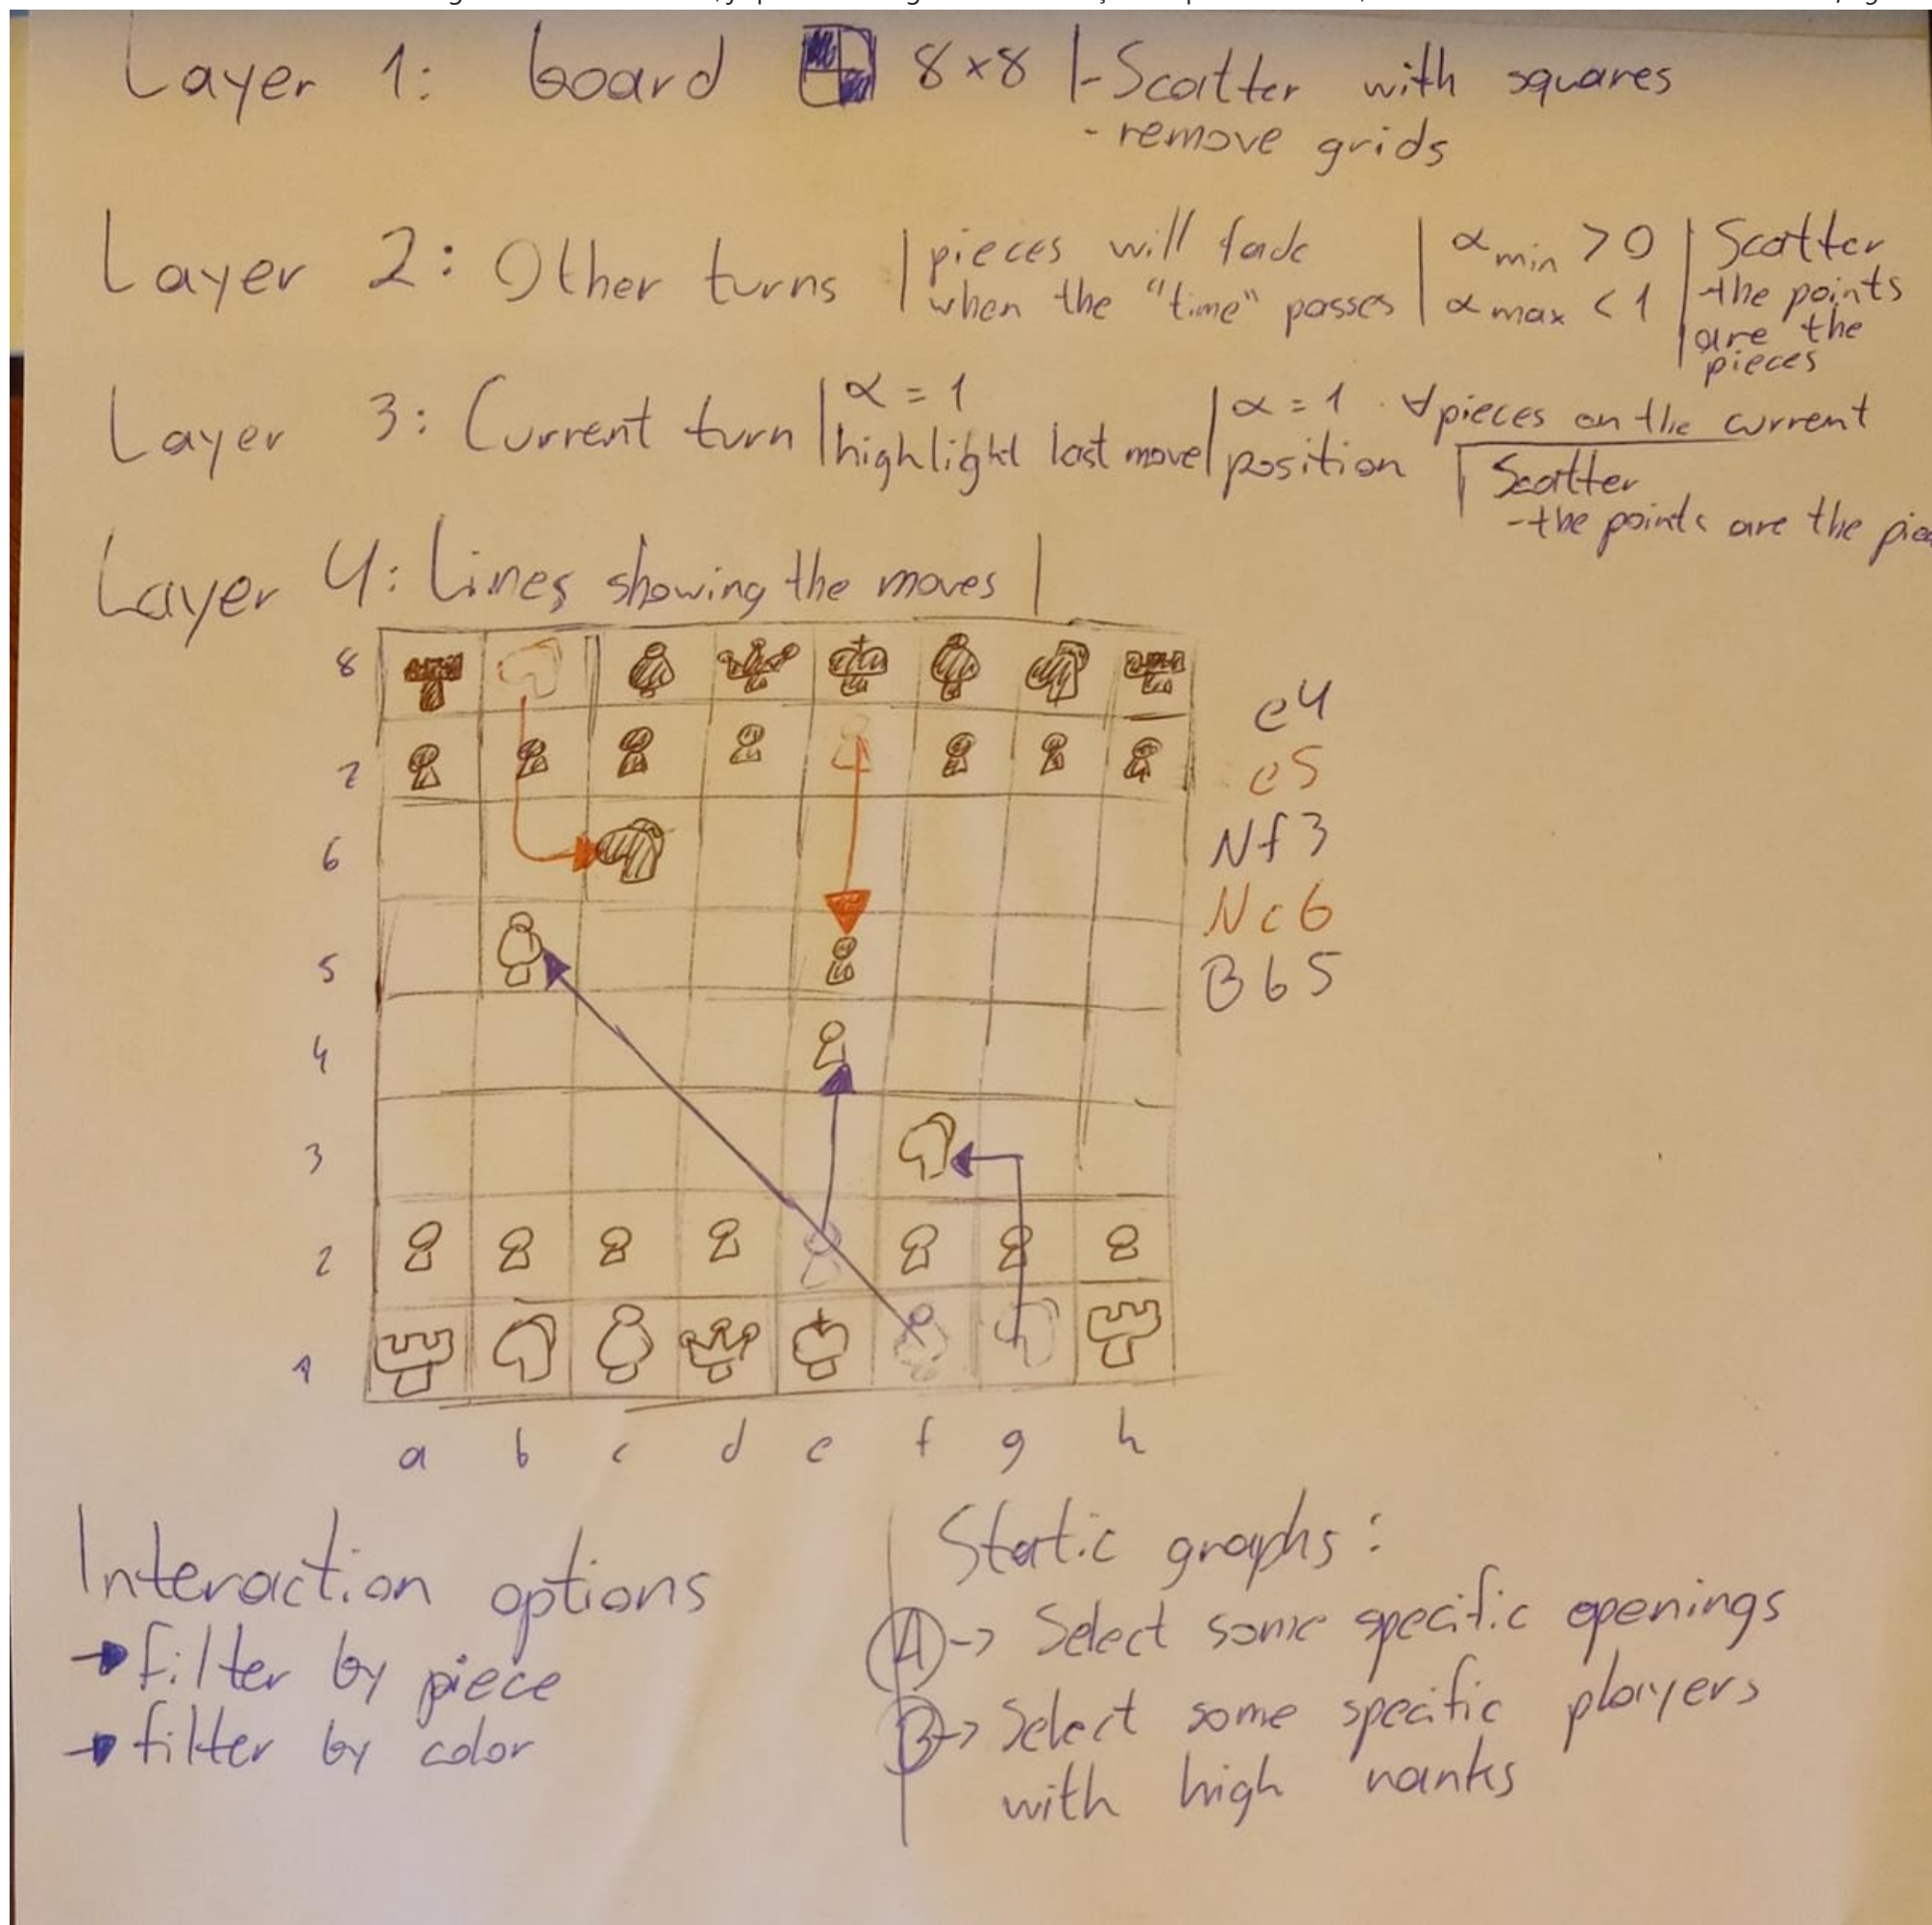 Layer 1: board 8x8 |-Scatter with squares
- remove grids
Layer 2: Other turns | pieces will fade when the "time" passes | α min > 0 α max < 1 | Scatter -the points are the pieces
Layer 3: Current turn | α = 1 highlight last move | α = 1 ∀pieces on the current position
Scatter
-the points are the
Layer 4: Lines showing the moves |
8
7
6
5
4
3
2
1
a b c d e f g h
e4
e5
Nf3
Nc6
Bb5
Interaction options
→ filter by piece
→ filter by color
Static graphs:
A -> Select some specific openings
B -> Select some specific players
with high ranks